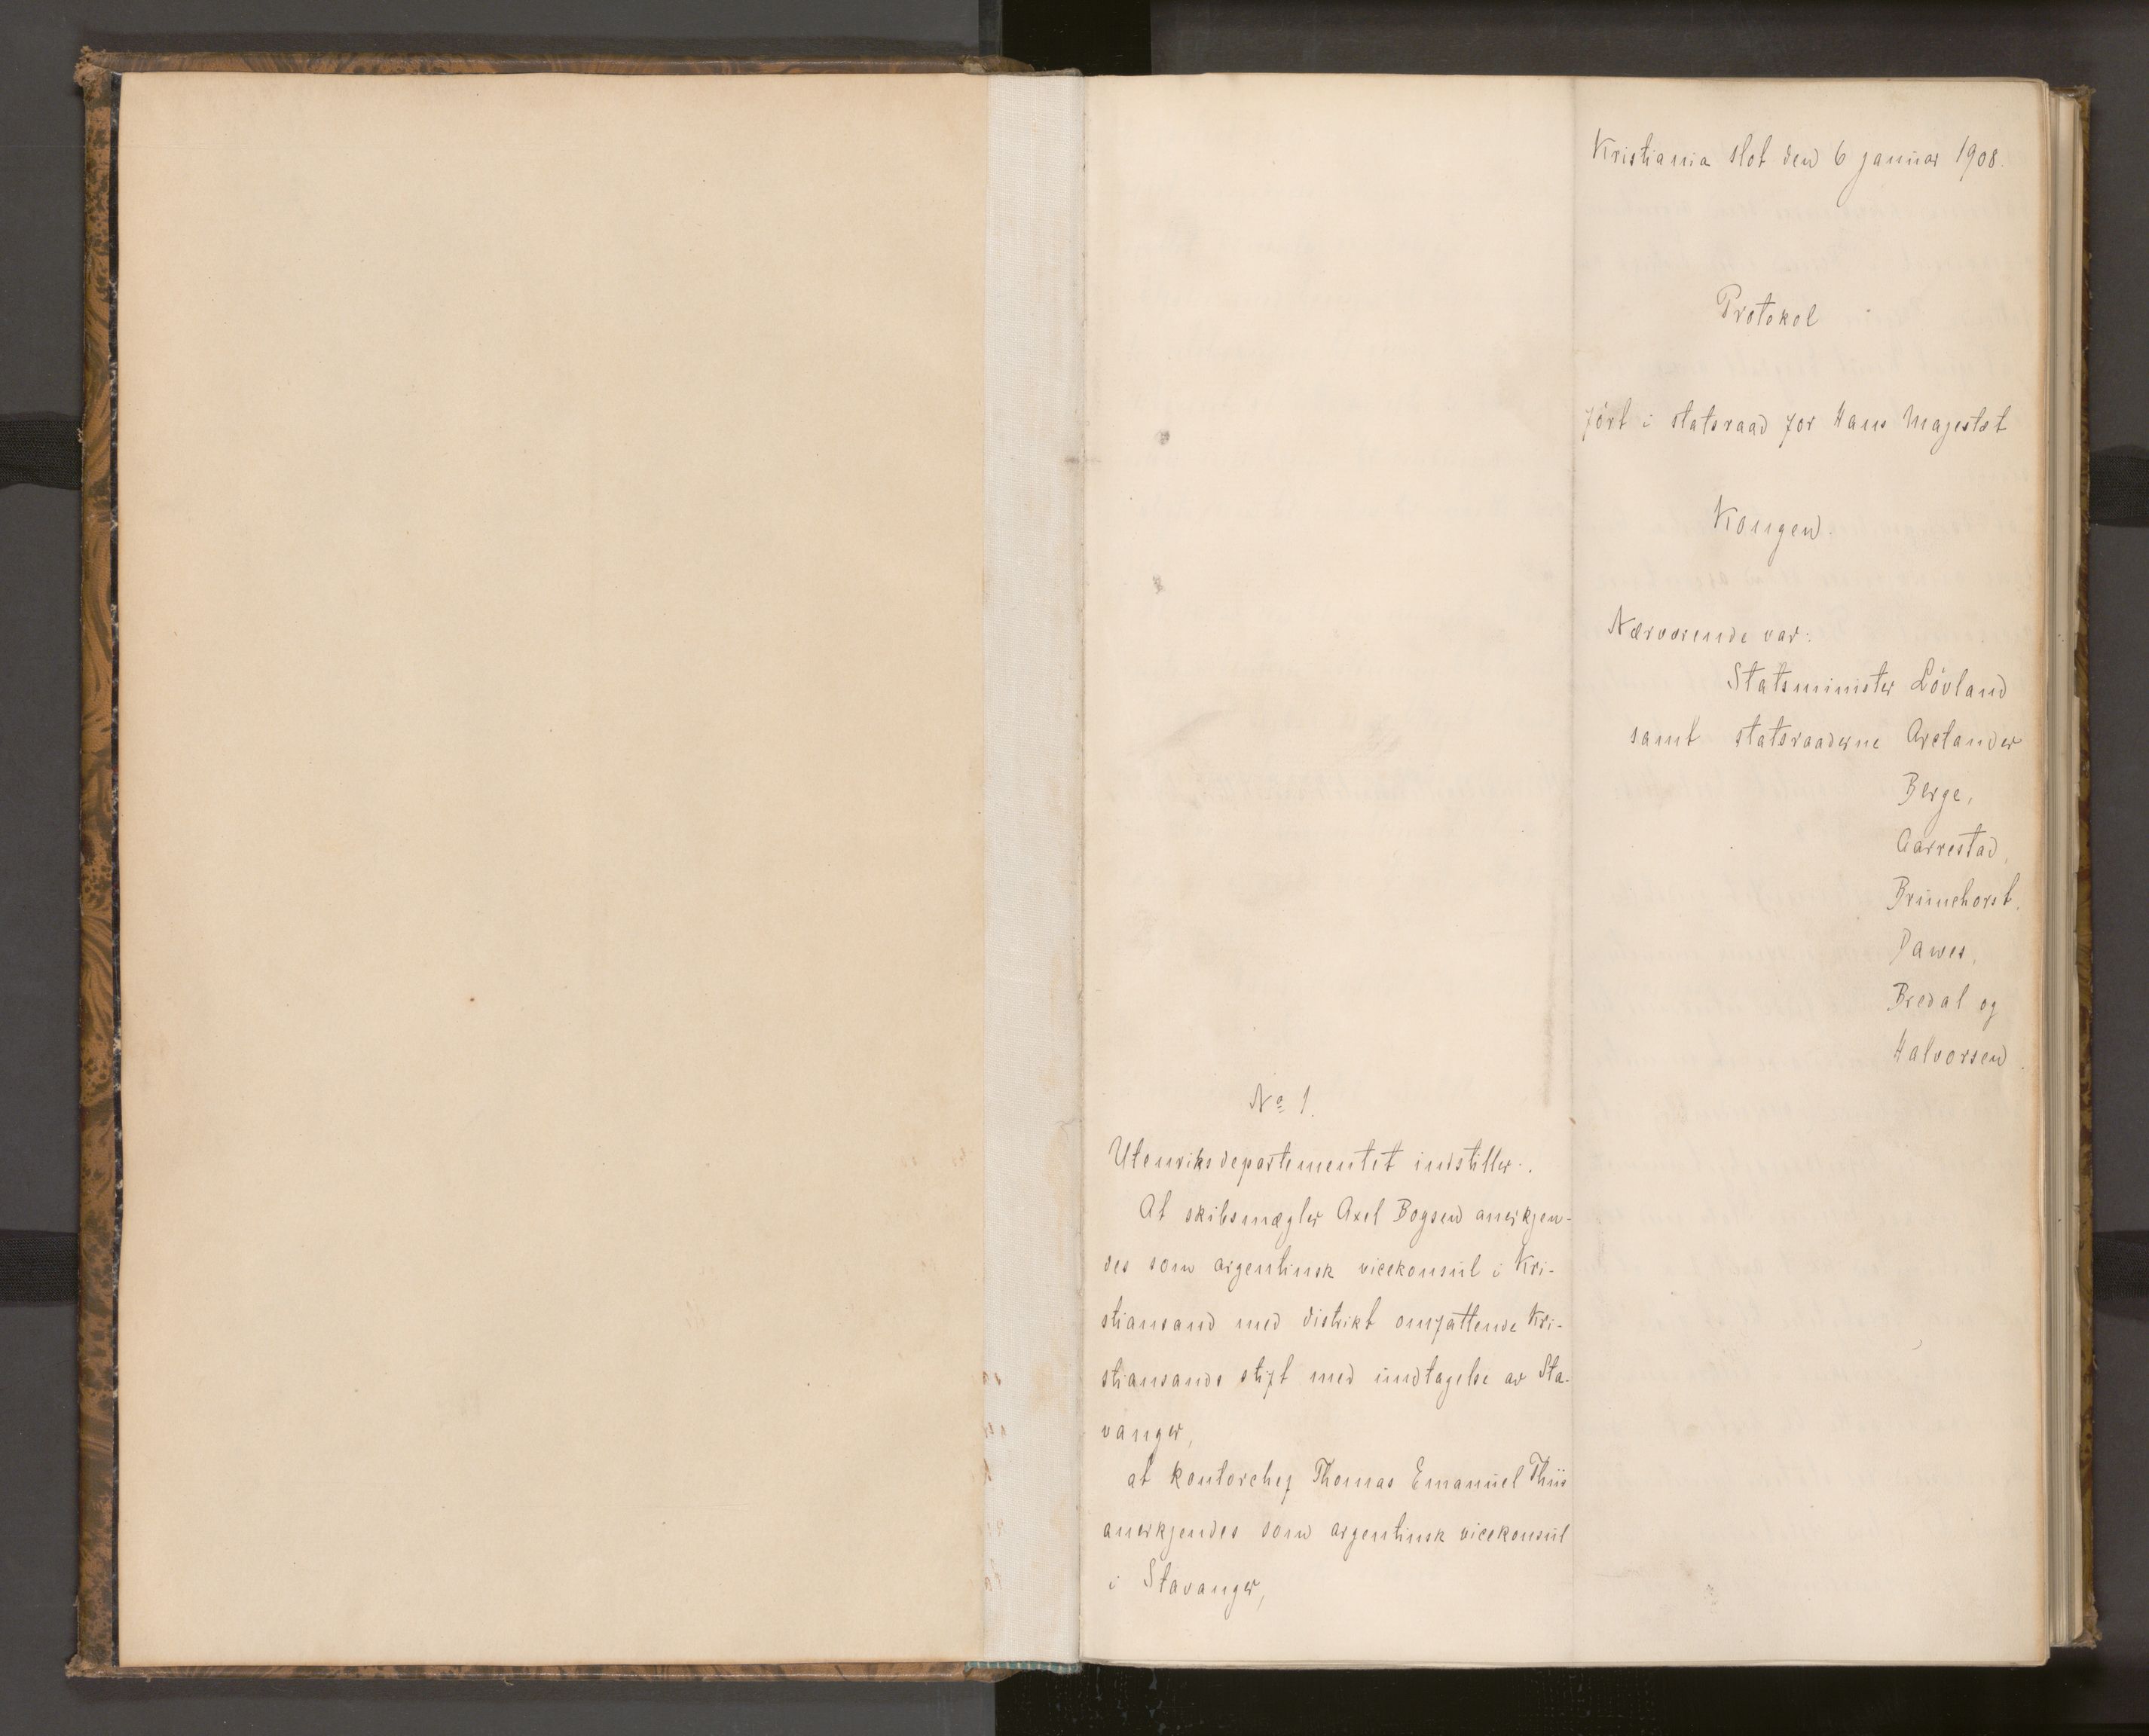 Kristiania slot den 6 januar 1908.
Protokol
ført i statsraad for Hans Majestæt
Kongen.
Nærværende var:
Statsminister Lövland
samt statsraaderne Arctander
Berge,
Aarrestad,
Brunchorst,
Dawes,
Bredal og
Halvorsen.
No 1.
Utenriksdepartementet indstiller:
At skibsmægler Axel Boysen anerkjen-
des som argentinsk vicekonsul i Kri-
stiansand med distrikt omfattende Kri-
stiansands stift med undtagelse av Sta-
vanger,
at kontorchef Thomas Emanuel Thiis
anerkjendes som argentinsk vicekonsul
i Stavanger,